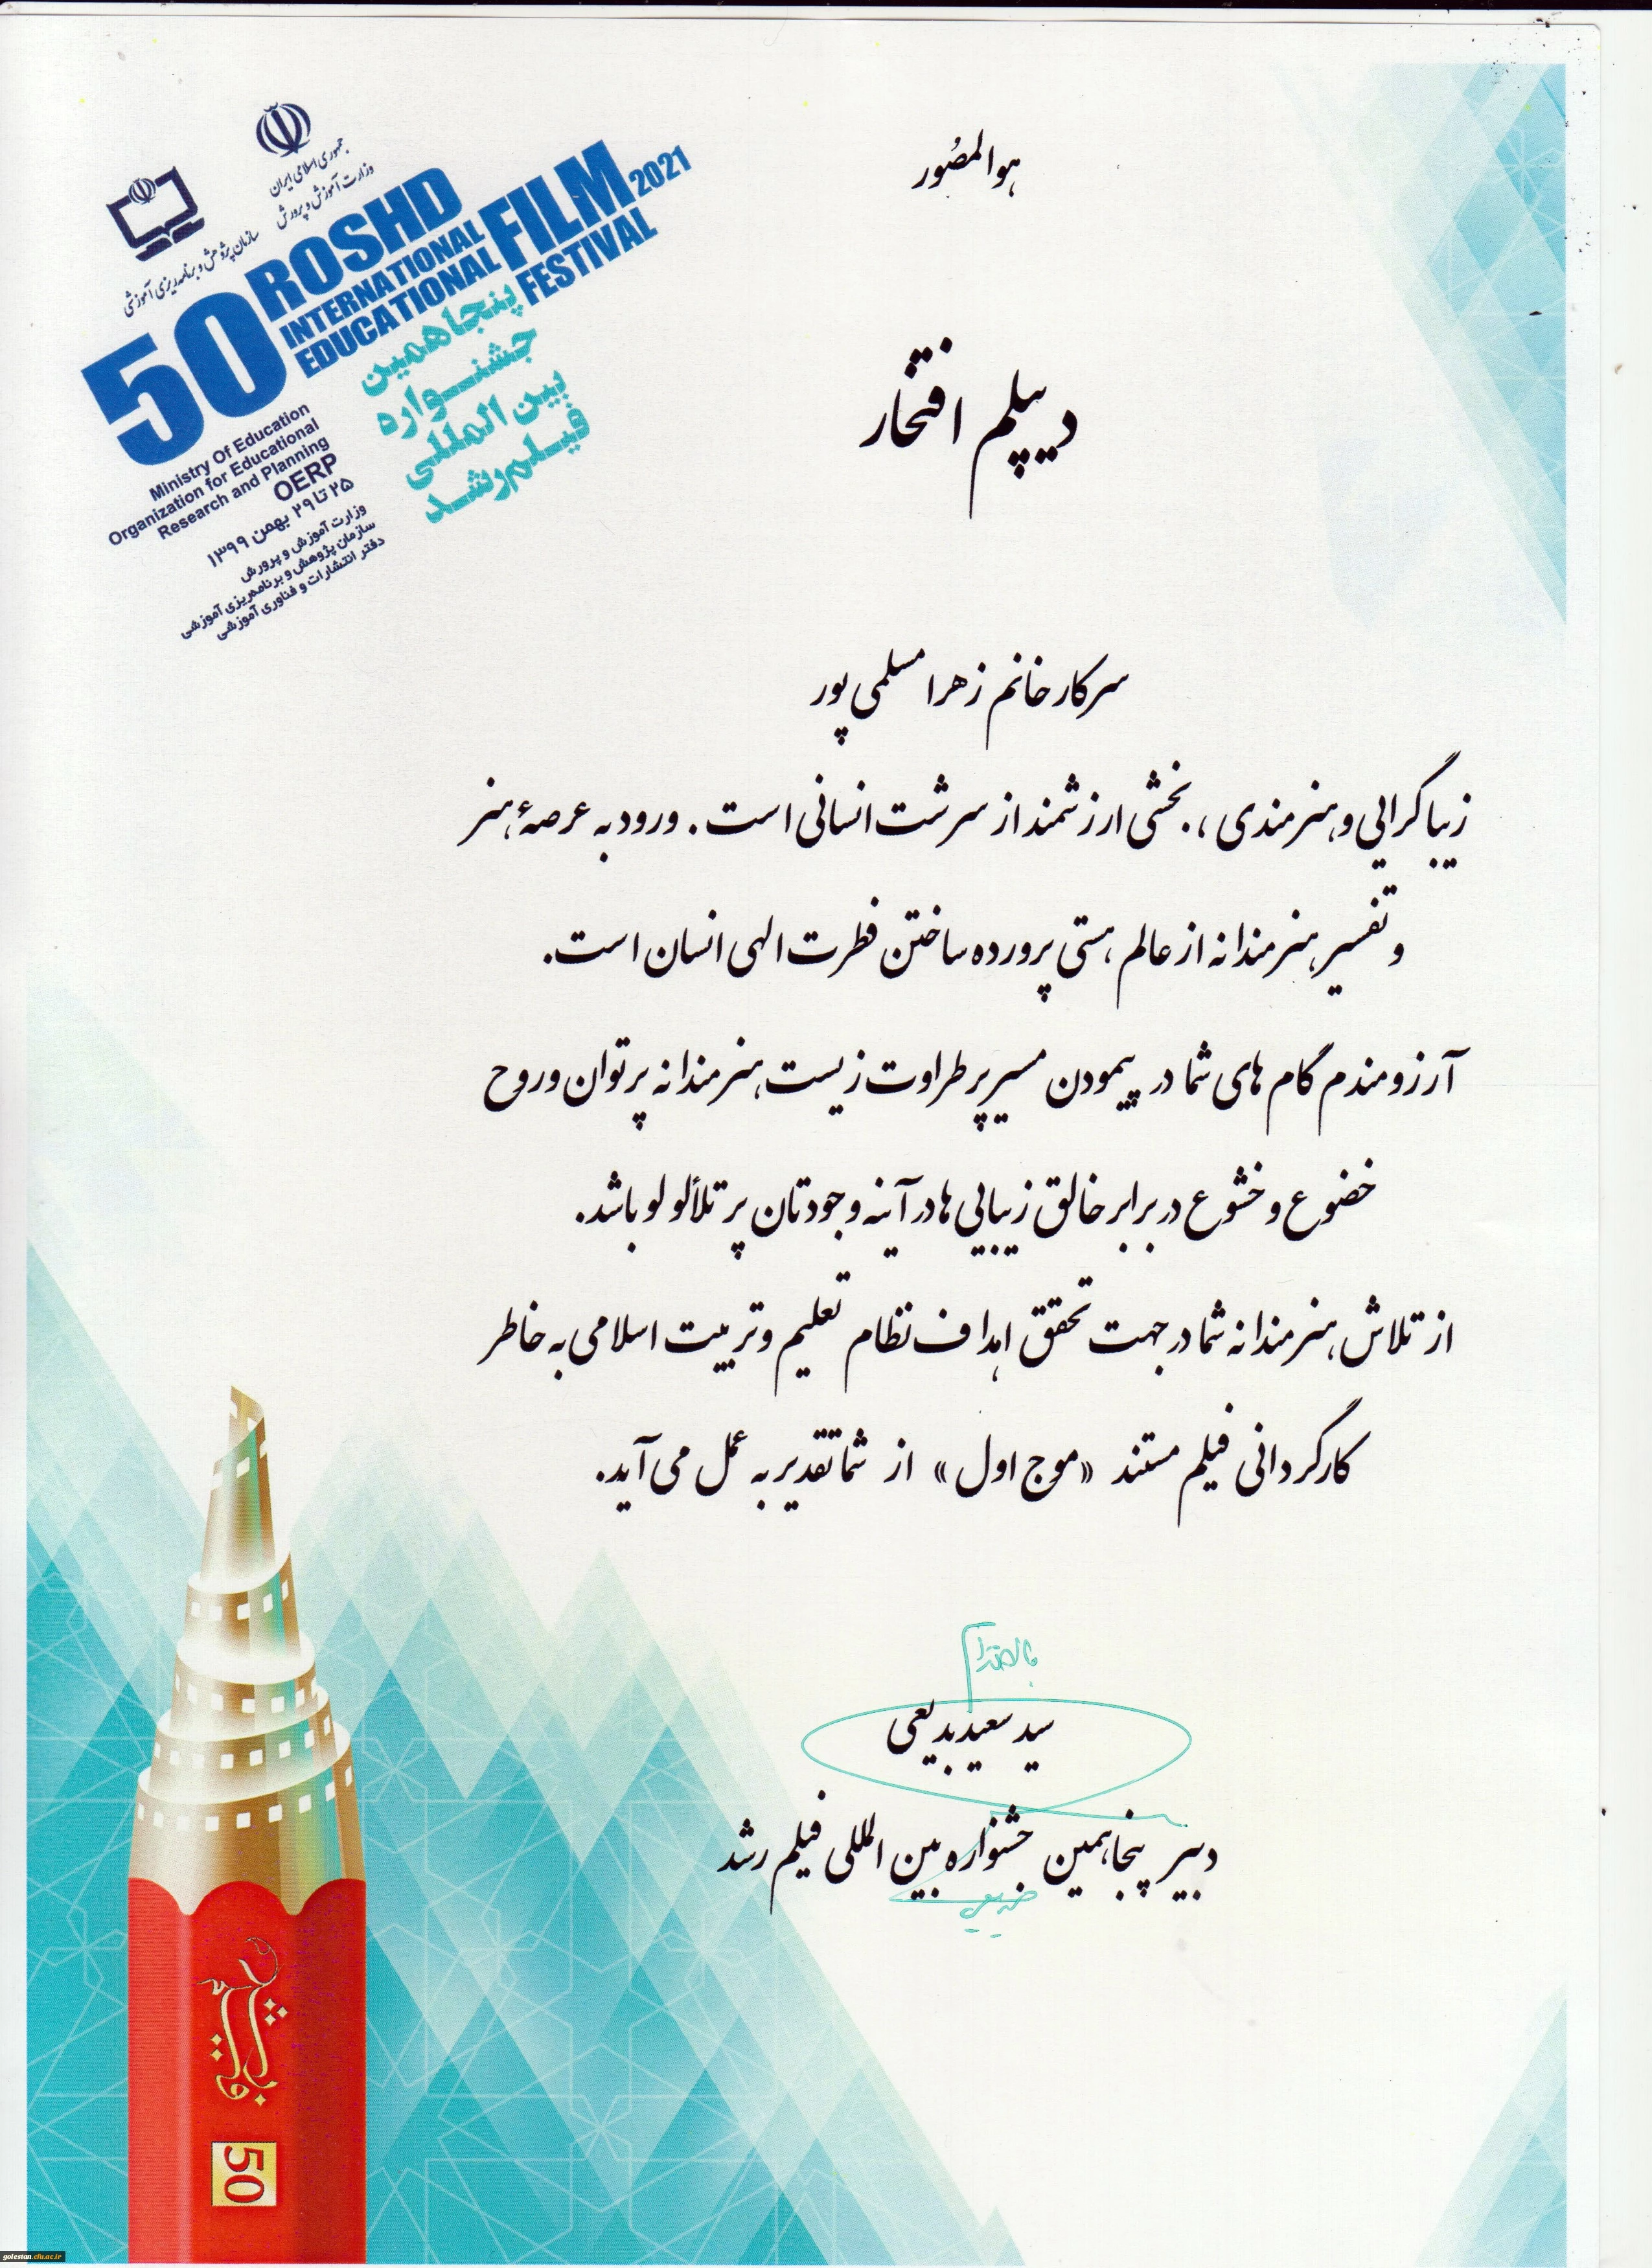 هوالمصُور
جمهوری اسلامی ایران
وزارت آموزش و پرورش
سازمان پژوهش و برنامه ریزی آموزشی
50 ROSHD
INTERNATIONAL
EDUCATIONAL
FILM 2021
FESTIVAL
پنجاهمین
جشنواره
بین المللی
فیلم رشد
Ministry Of Education
Organization for Educational
Research and Planning
OERP
۲۵ تا ۲۹ بهمن ۱۳۹۹
وزارت آموزش و پرورش
سازمان پژوهش و برنامه‌ریزی آموزشی
دفتر انتشارات و فناوری آموزشی
دیپلم افتخار
سرکار خانم زهرا مسلمی پور
زیباگرایی و هنرمندی ، بخشی ارزشمند از سرشت انسانی است . ورود به عرصۀ هنر
و تفسیر هنرمندانه از عالم هستی پرورده ساختن فطرت الهی انسان است.
آرزومندم گام های شما در پیمودن مسیر پر طراوت زیست هنرمندانه پر توان و روح
خضوع و خشوع در برابر خالق زیبایی ها در آینه وجودتان پر تلألو لو باشد.
از تلاش هنرمندانه شما در جهت تحقق اهداف نظام تعلیم و تربیت اسلامی به خاطر
کارگردانی فیلم مستند «موج اول» از شما تقدیر به عمل می آید.
سید سعید بدیعی
دبیر پنجاهمین جشنواره بین المللی فیلم رشد
50
golestan.cfu.ac.ir